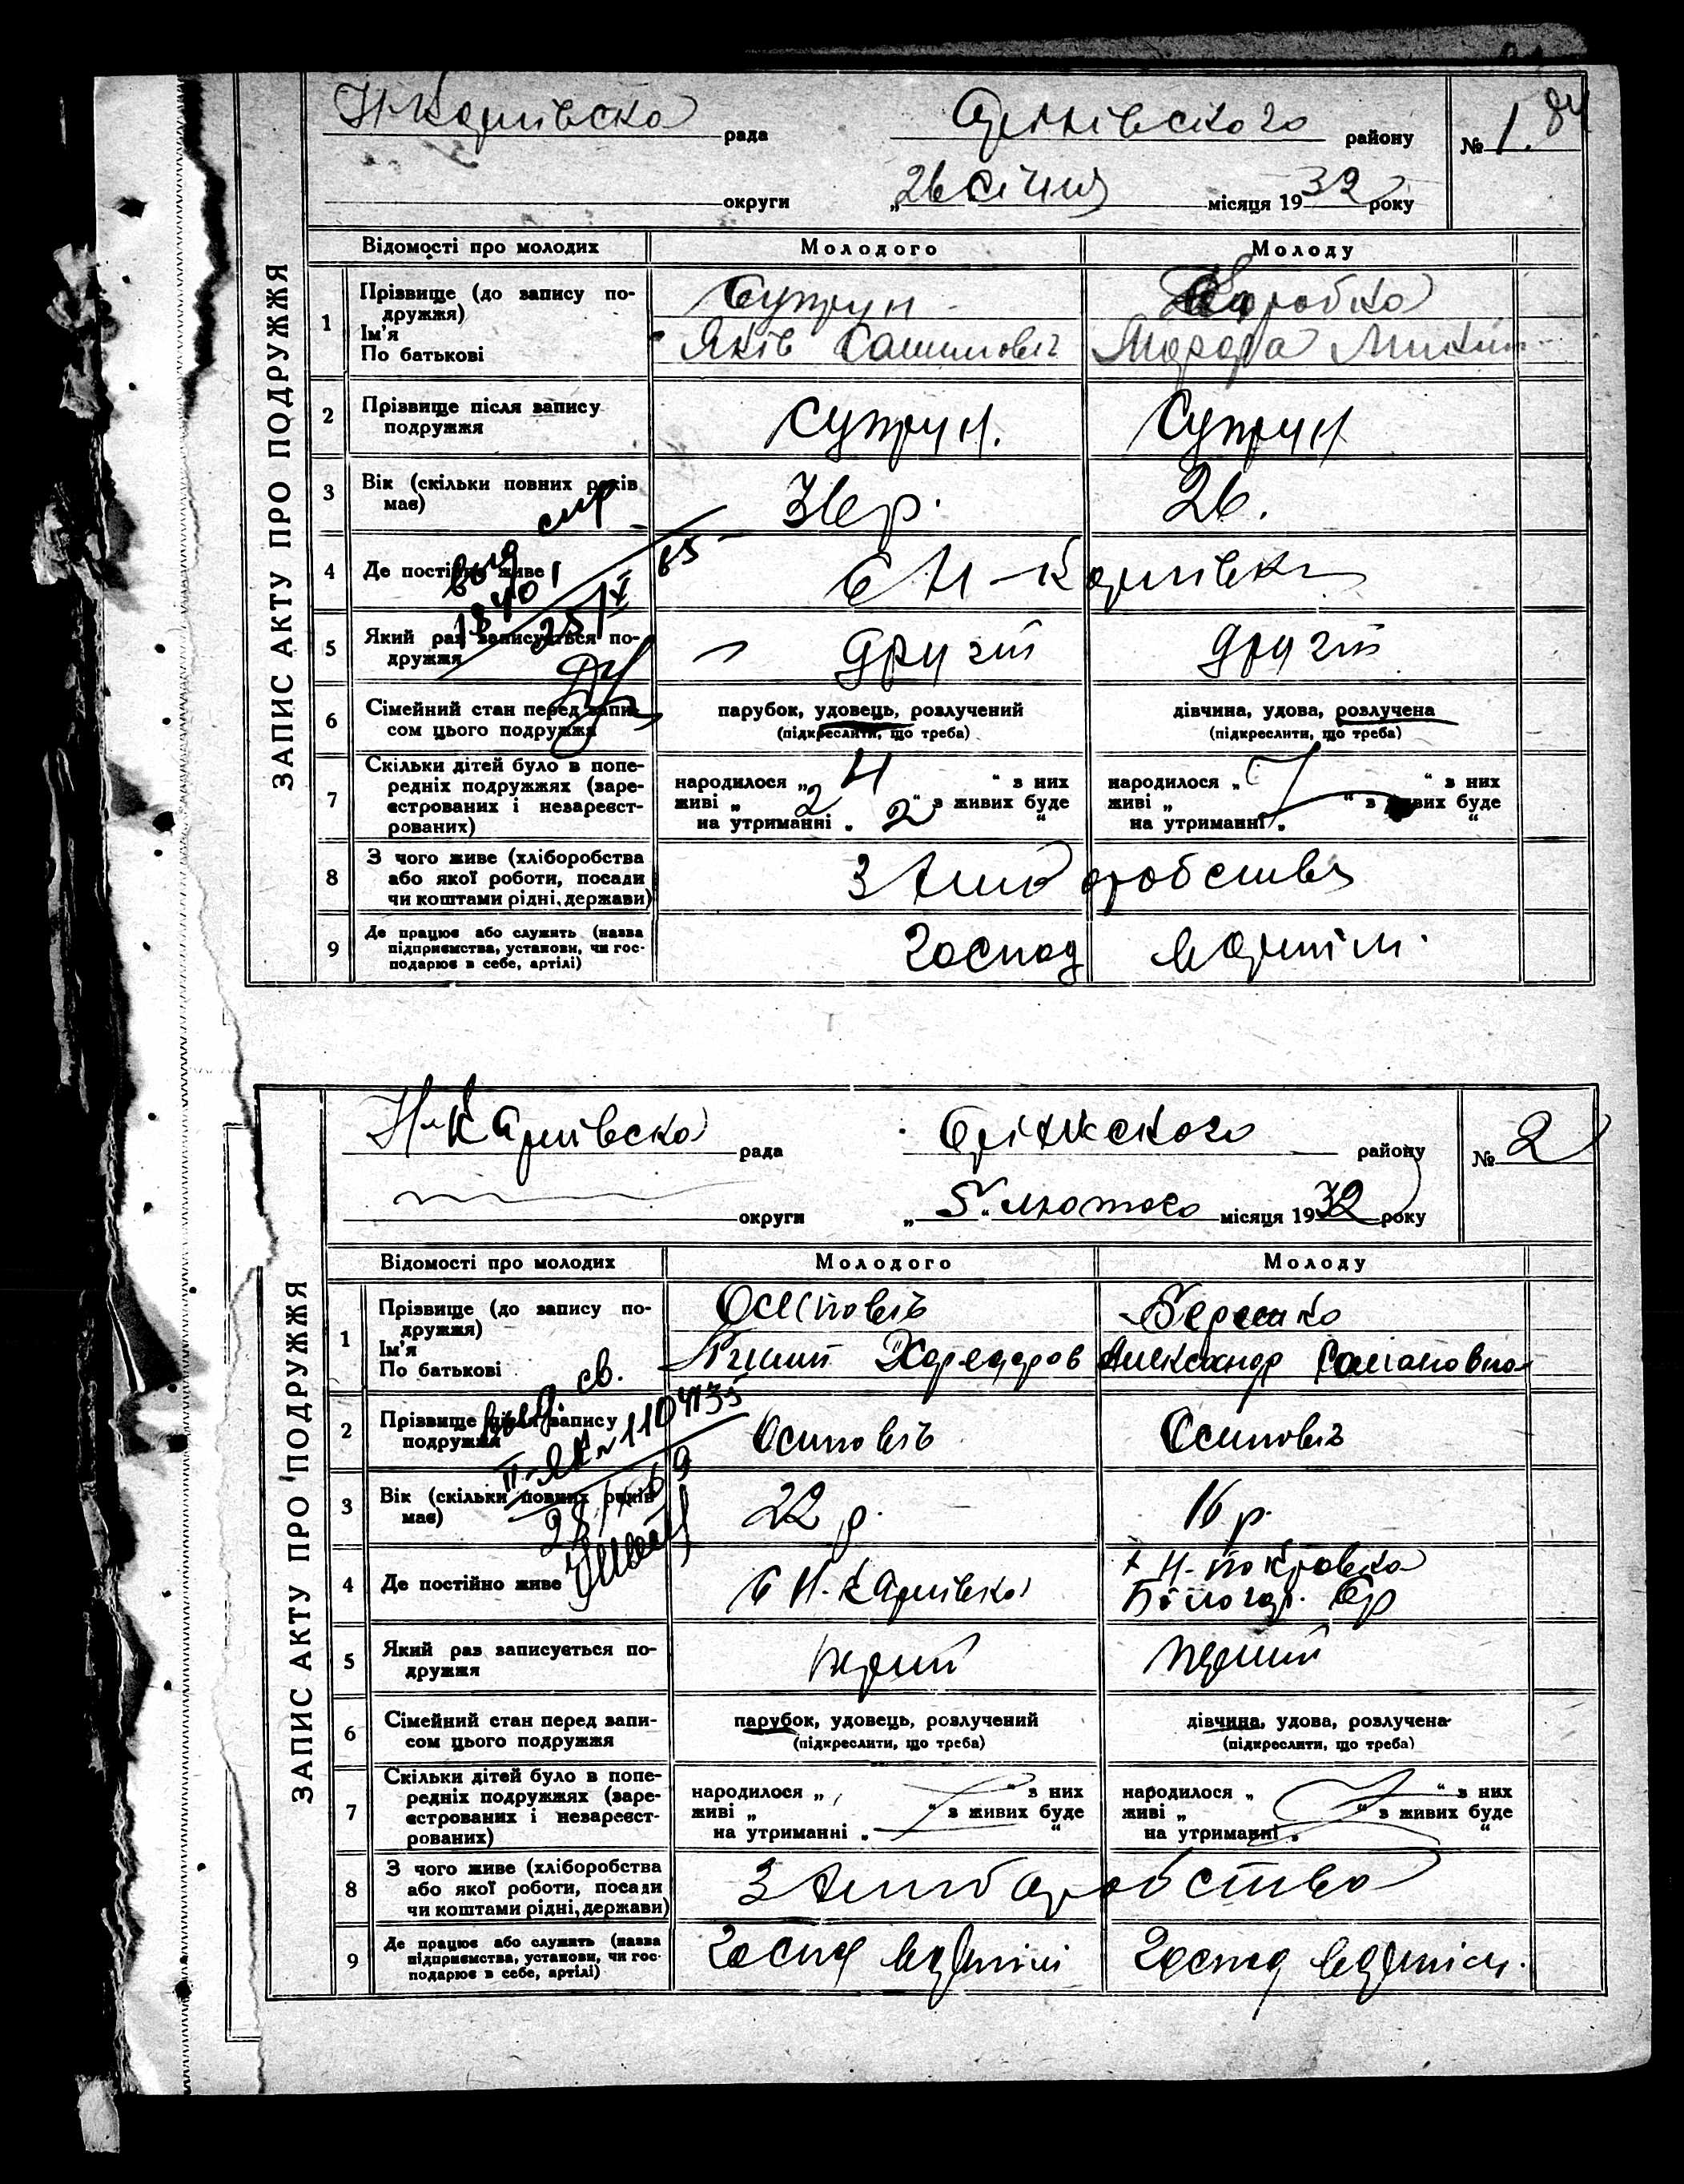 Н-Карлівска рада Оріхівского району № 1. 84
округи „26 січня місяця 1932 року
ЗАПИС АКТУ ПРО ПОДРУЖЖЯ
Відомості про молодих Молодого Молоду
1 Прізвище (до запису подружжя) Супрун Коробка
Ім'я
По батькові Яків
2 Прізвище після запису подружжя Супрун. Супрун
3 Вік (скільки повних років має) 36 р. 26.
4 Де постійно живе Н-Карлівка
5 Який раз записується подружжя другий другий
6 Сімейний стан перед записом цього подружжя парубок, удовець, розлучений дівчина, удова, розлучена
(підкреслити, що треба) (підкреслити, що треба)
7 Скільки дітей було в попередніх подружжях (зареєстрованих і незареєстрованих) народилося „ 4 “ з них народилося „ “ з них
живі „ 2 “ з живих буде живі „ “ з живих буде
на утриманні „ 2 “ на утриманні „ “
8 З чого живе (хліборобства або якої роботи, посади чи коштами рідні, держави) З хліборобства
9 Де працює або служить (назва підприємства, установи, чи господарює в себе, артілі) господ в артілі.
Н-Карлівска рада району № 2
округи „ 5. лютого місяця 1932 року
ЗАПИС АКТУ ПРО ПОДРУЖЖЯ
Відомості про молодих Молодого Молоду
1 Прізвище (до запису подружжя) Осіповіч
Ім'я
По батькові Александр
2 Прізвище після запису подружжя Осиповіч Осиповіч
3 Вік (скільки повних років має) 22 р. 16 р.
4 Де постійно живе с Н. Карлівка х Н-Покровка
5 Який раз записується подружжя перший перший
6 Сімейний стан перед записом цього подружжя парубок, удовець, розлучений дівчина, удова, розлучена
(підкреслити, що треба) (підкреслити, що треба)
7 Скільки дітей було в попередніх подружжях (зареєстрованих і незареєстрованих) народилося „ “ з них народилося „ “ з них
живі „ “ з живих буде живі „ “ з живих буде
на утриманні „ “ на утриманні „ “
8 З чого живе (хліборобства або якої роботи, посади чи коштами рідні, держави) З хлиборобство
9 Де працює або служить (назва підприємства, установи, чи господарює в себе, артілі) господ в артілі господ в артілі.